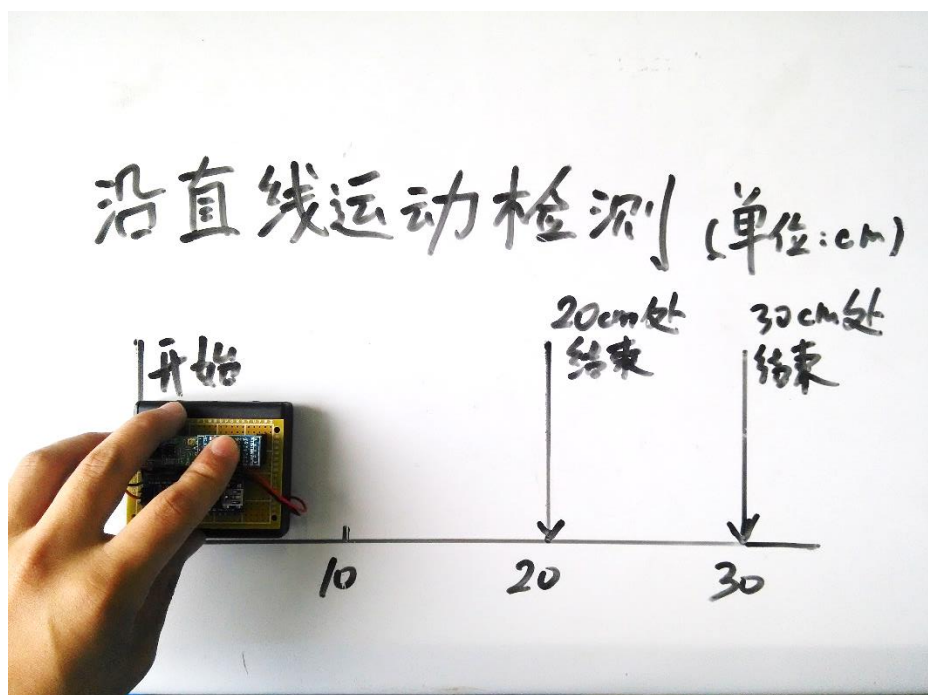 沿直线运动检测(单位:cm)
开始
20cm处
结束
30cm处
结束
10
20
30